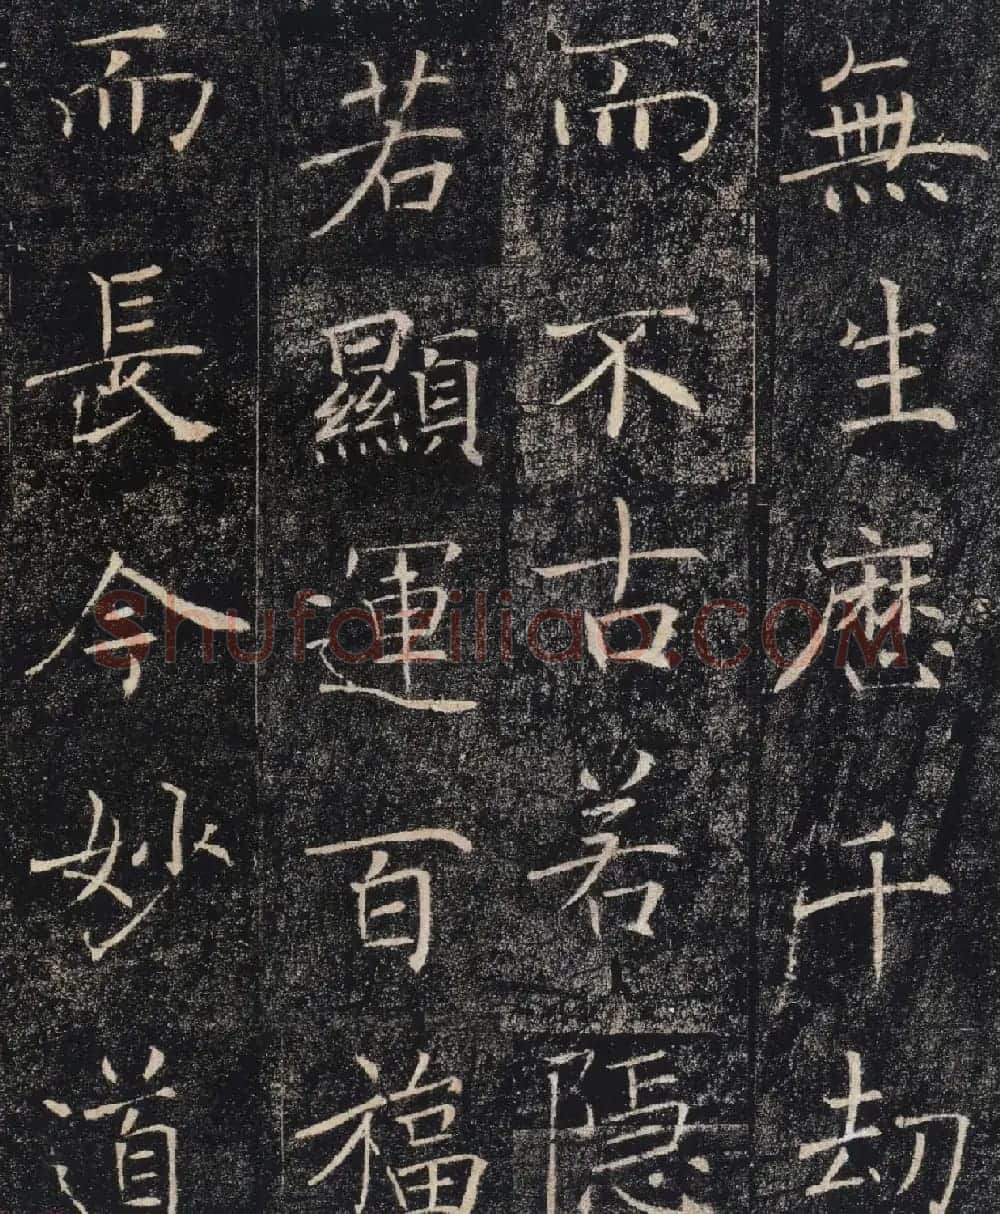 無生歷千劫
而不古若隱
若顯運百福
而長今妙道
Shufaziliao.COM